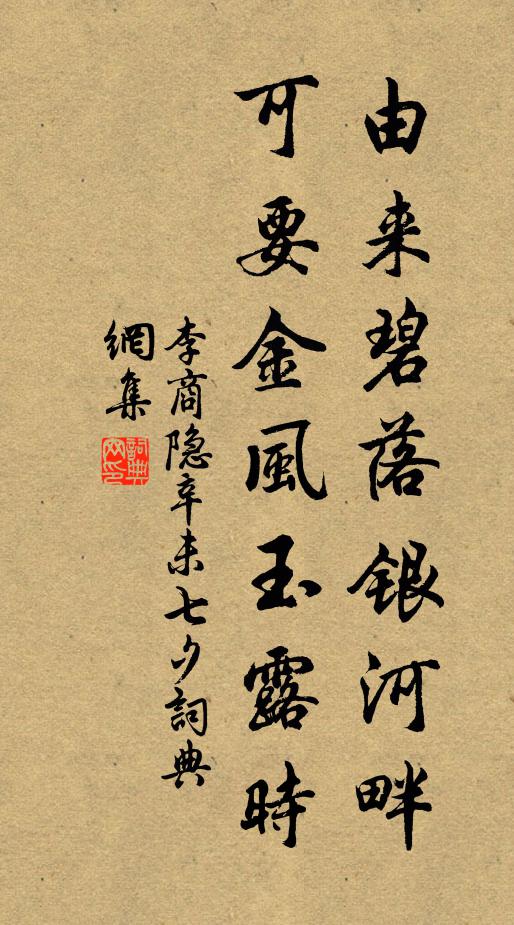 由来碧落银河畔
可要金風玉露時
李商隐辛未七夕詞典
網集
詞典网印